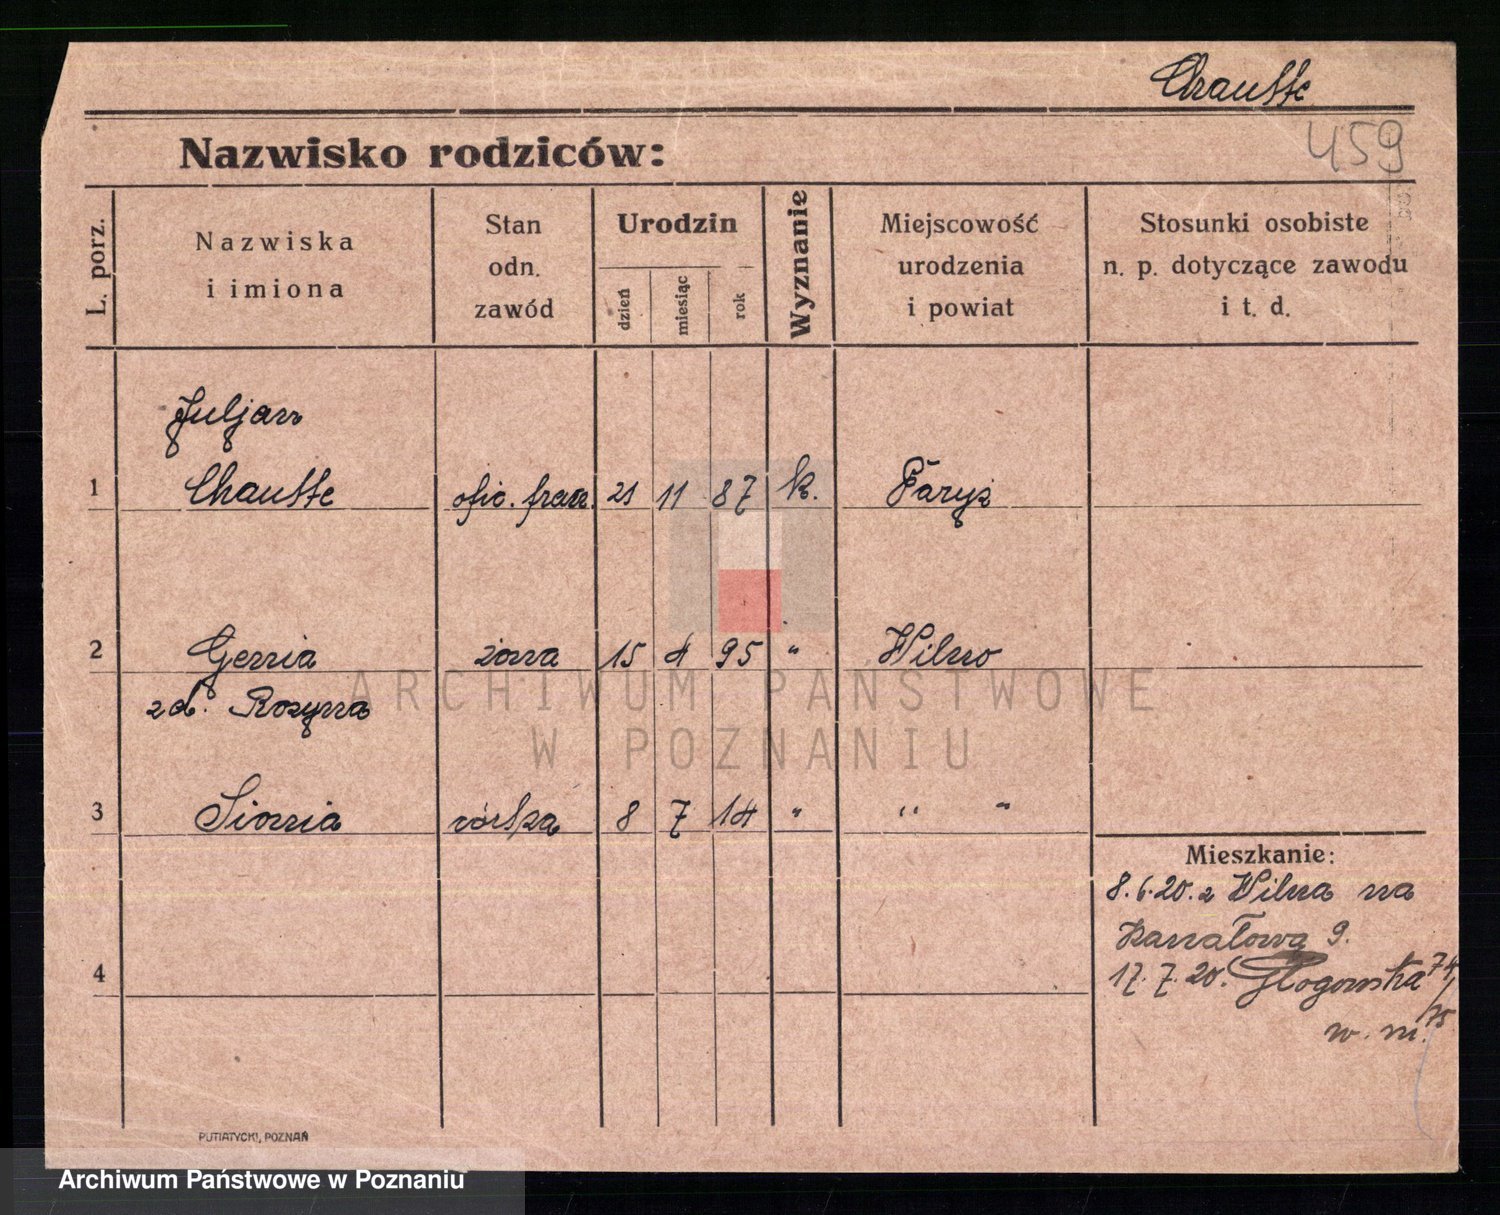 Chautte
459
Nazwisko rodziców:
L. porz.
Nazwiska i imiona
Stan odn. zawód
Urodzin
dzień
miesiąc
rok
Wyznanie
Miejscowość urodzenia i powiat
Stosunki osobiste n. p. dotyczące zawodu i t. d.
Juljan
1 Chautte ofic. franc. 21 11 87 k. Paryż
2 Genia żona 15 4 95 " Wilno
zd. Rozyna
3 Sionia córka 8 7 14 " " "
Mieszkanie:
8.6.20. z Wilna na
Kanałową 9.
4
17.7.20. Głogowska 74/75
w. m.
PUTIATYCKI, POZNAŃ
ARCHIWUM PAŃSTWOWE
W POZNANIU
Archiwum Państwowe w Poznaniu